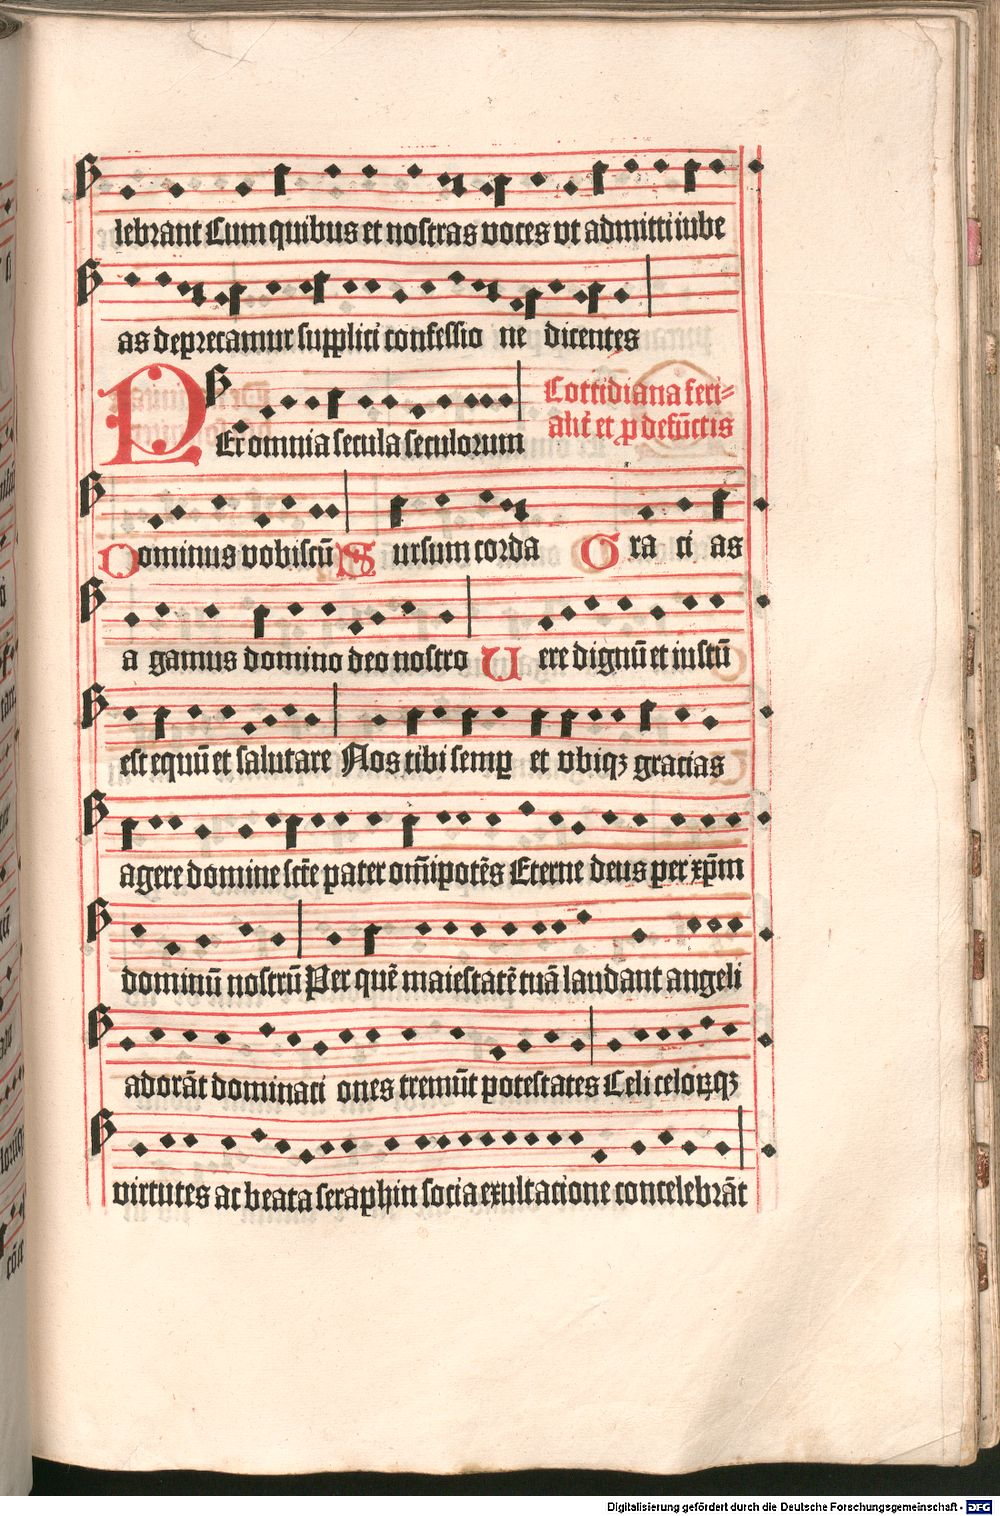 lebrant Cum quibus et nostras voces vt admitti iube
as deprecamur supplici confessio ne dicentes
PEr omnia secula seculorum
Cottidiana feri⸗
alit͛ et ꝓ defūctis
Dominus vobiscū Sursum corda Gra ci as
a gamus domino deo nostro Uere dignū et iustū
est equū et salutare Nos tibi semꝑ et vbiqꝫ gracias
agere domine sctē pater om̄ipotēs Eterne deus per xp̄m
dominū nostrū Per quē maiestatē tuā laudant angeli
adorāt dominaci ones tremūt potestates Celi celoꝝqꝫ
virtutes ac beata seraphin socia exultacione concelebrāt
Digitalisierung gefördert durch die Deutsche Forschungsgemeinschaft - DFG